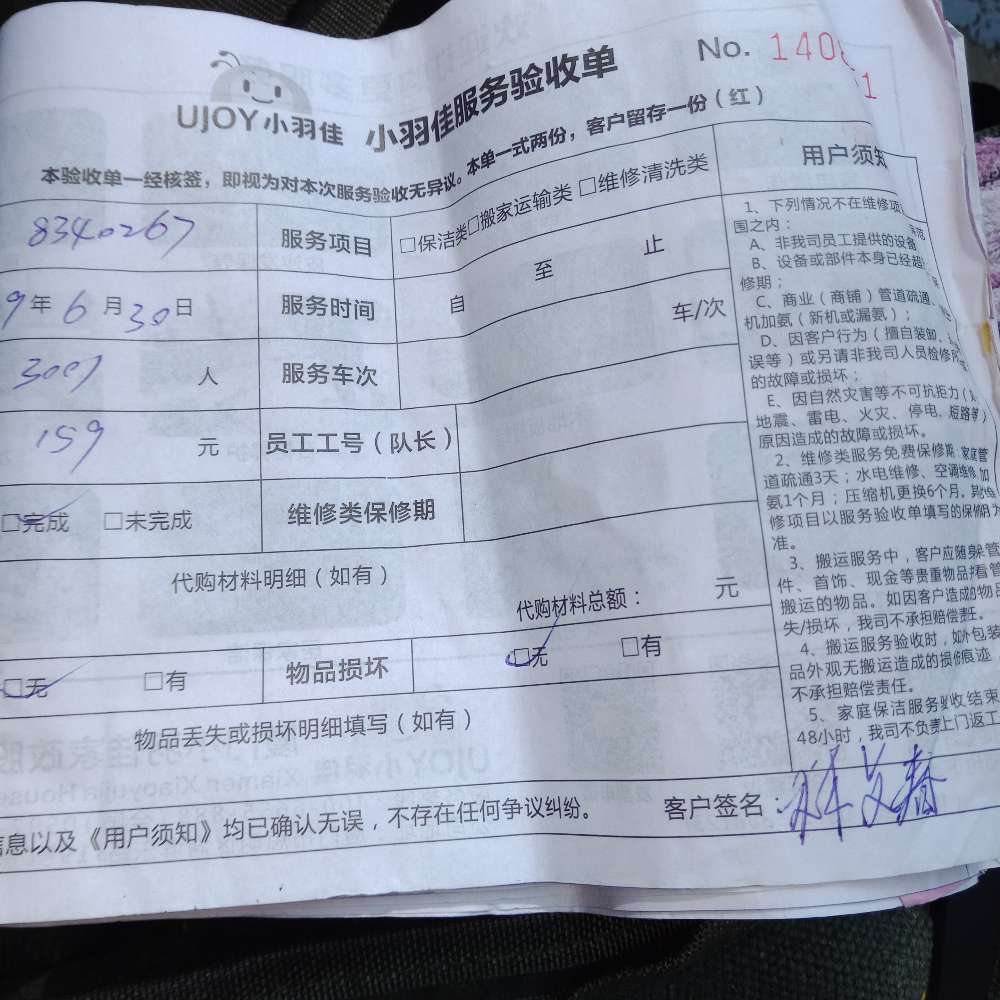 UJOY小羽佳 小羽佳服务验收单 No. 140
1
本验收单一经核签，即视为对本次服务验收无异议。本单一式两份，客户留存一份（红）
8340267 服务项目 □保洁类□搬家运输类 □维修清洗类
9年6月30日 服务时间 自 至 止
3001 人 服务车次 车/次
159 元 员工工号（队长）
□完成 □未完成 维修类保修期
代购材料明细（如有） 代购材料总额： 元
□无 □有 物品损坏 □无 □有
物品丢失或损坏明细填写（如有）
信息以及《用户须知》均已确认无误，不存在任何争议纠纷。 客户签名：
用户须知
1、下列情况不在维修项
围之内：
A、非我司员工提供的设备
B、设备或部件本身已经超
修期；
C、商业（商铺）管道疏通、
机加氨（新机或漏氨）；
D、因客户行为（擅自装卸、
误等）或另请非我司人员检修
的故障或损坏；
E、因自然灾害等不可抗拒力（
地震、雷电、火灾、停电、短路等）
原因造成的故障或损坏。
2、维修类服务免费保修期：家庭管
道疏通3天；水电维修、空调维修、加
氨1个月；压缩机更换6个月。其他维
修项目以服务验收单填写的保修期为
准。
3、搬运服务中，客户应随身保管
件、首饰、现金等贵重物品并看管
搬运的物品。如因客户造成的物品
失/损坏，我司不承担赔偿责任。
4、搬运服务验收时，如外包装
品外观无搬运造成的损伤痕迹
不承担赔偿责任。
5、家庭保洁服务验收结束
48小时，我司不负责上门返工